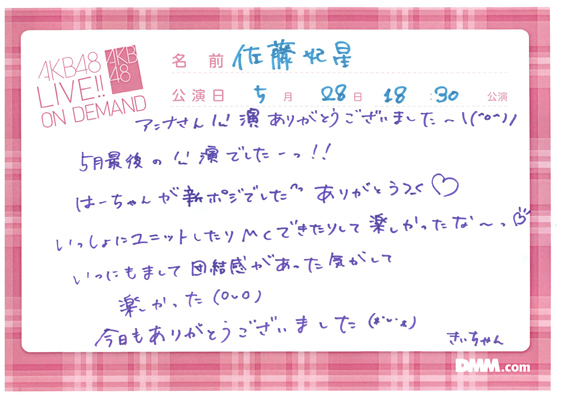 AKB48
LIVE!!
ON DEMAND
AKB
48
名前 佐藤妃星
公演日 5月 28日 18:30 公演
アンナさん公演ありがとうございました〜\(^o^)/
5月最後の公演でしたーっ!!
はーちゃんが新ポジでした^^ ありがとうっ♡
いっしょにユニットしたりMCできたりして楽しかったな〜っ
いつにもまして団結感があった気がして
楽しかった(OUO)
今日もありがとうございました
きぃちゃん
DMM.com